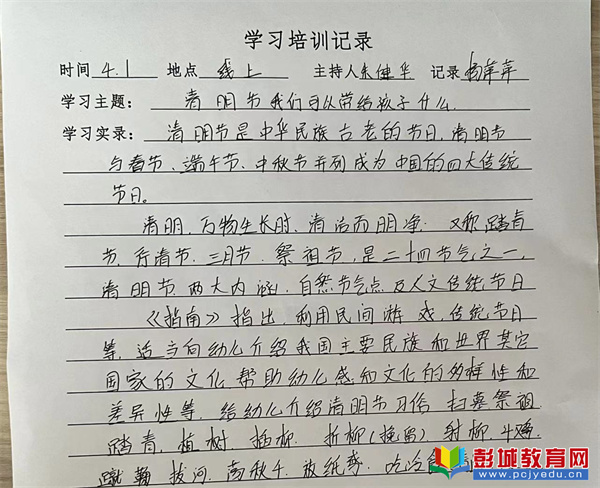 学习培训记录
时间 4.1 地点 线上 主持人 朱健华 记录 杨萍萍
学习主题: 清明节我们可以带给孩子什么.
学习实录: 清明节是中华民族古老的节日,清明节
与春节、端午节、中秋节并列成为中国的四大传统
节日。
清明,万物生长时,清洁而明净. 又称踏青
节,行清节.三月节.祭祖节,是二十四节气之一,
清明节两大内涵:自然节气点及人文传统节日
《指南》指出,利用民间游戏,传统节日
等,适当向幼儿介绍我国主要民族和世界其它
国家的文化,帮助幼儿感知文化的多样性和
差异性等.给幼儿介绍清明节习俗 扫墓祭祖
踏青,植树 插柳. 折柳(挽留) 射柳 斗鸡.
蹴鞠 拔河.荡秋千.放纸鸢.吃冷食
彭城教育网
www.pcjyedu.cn